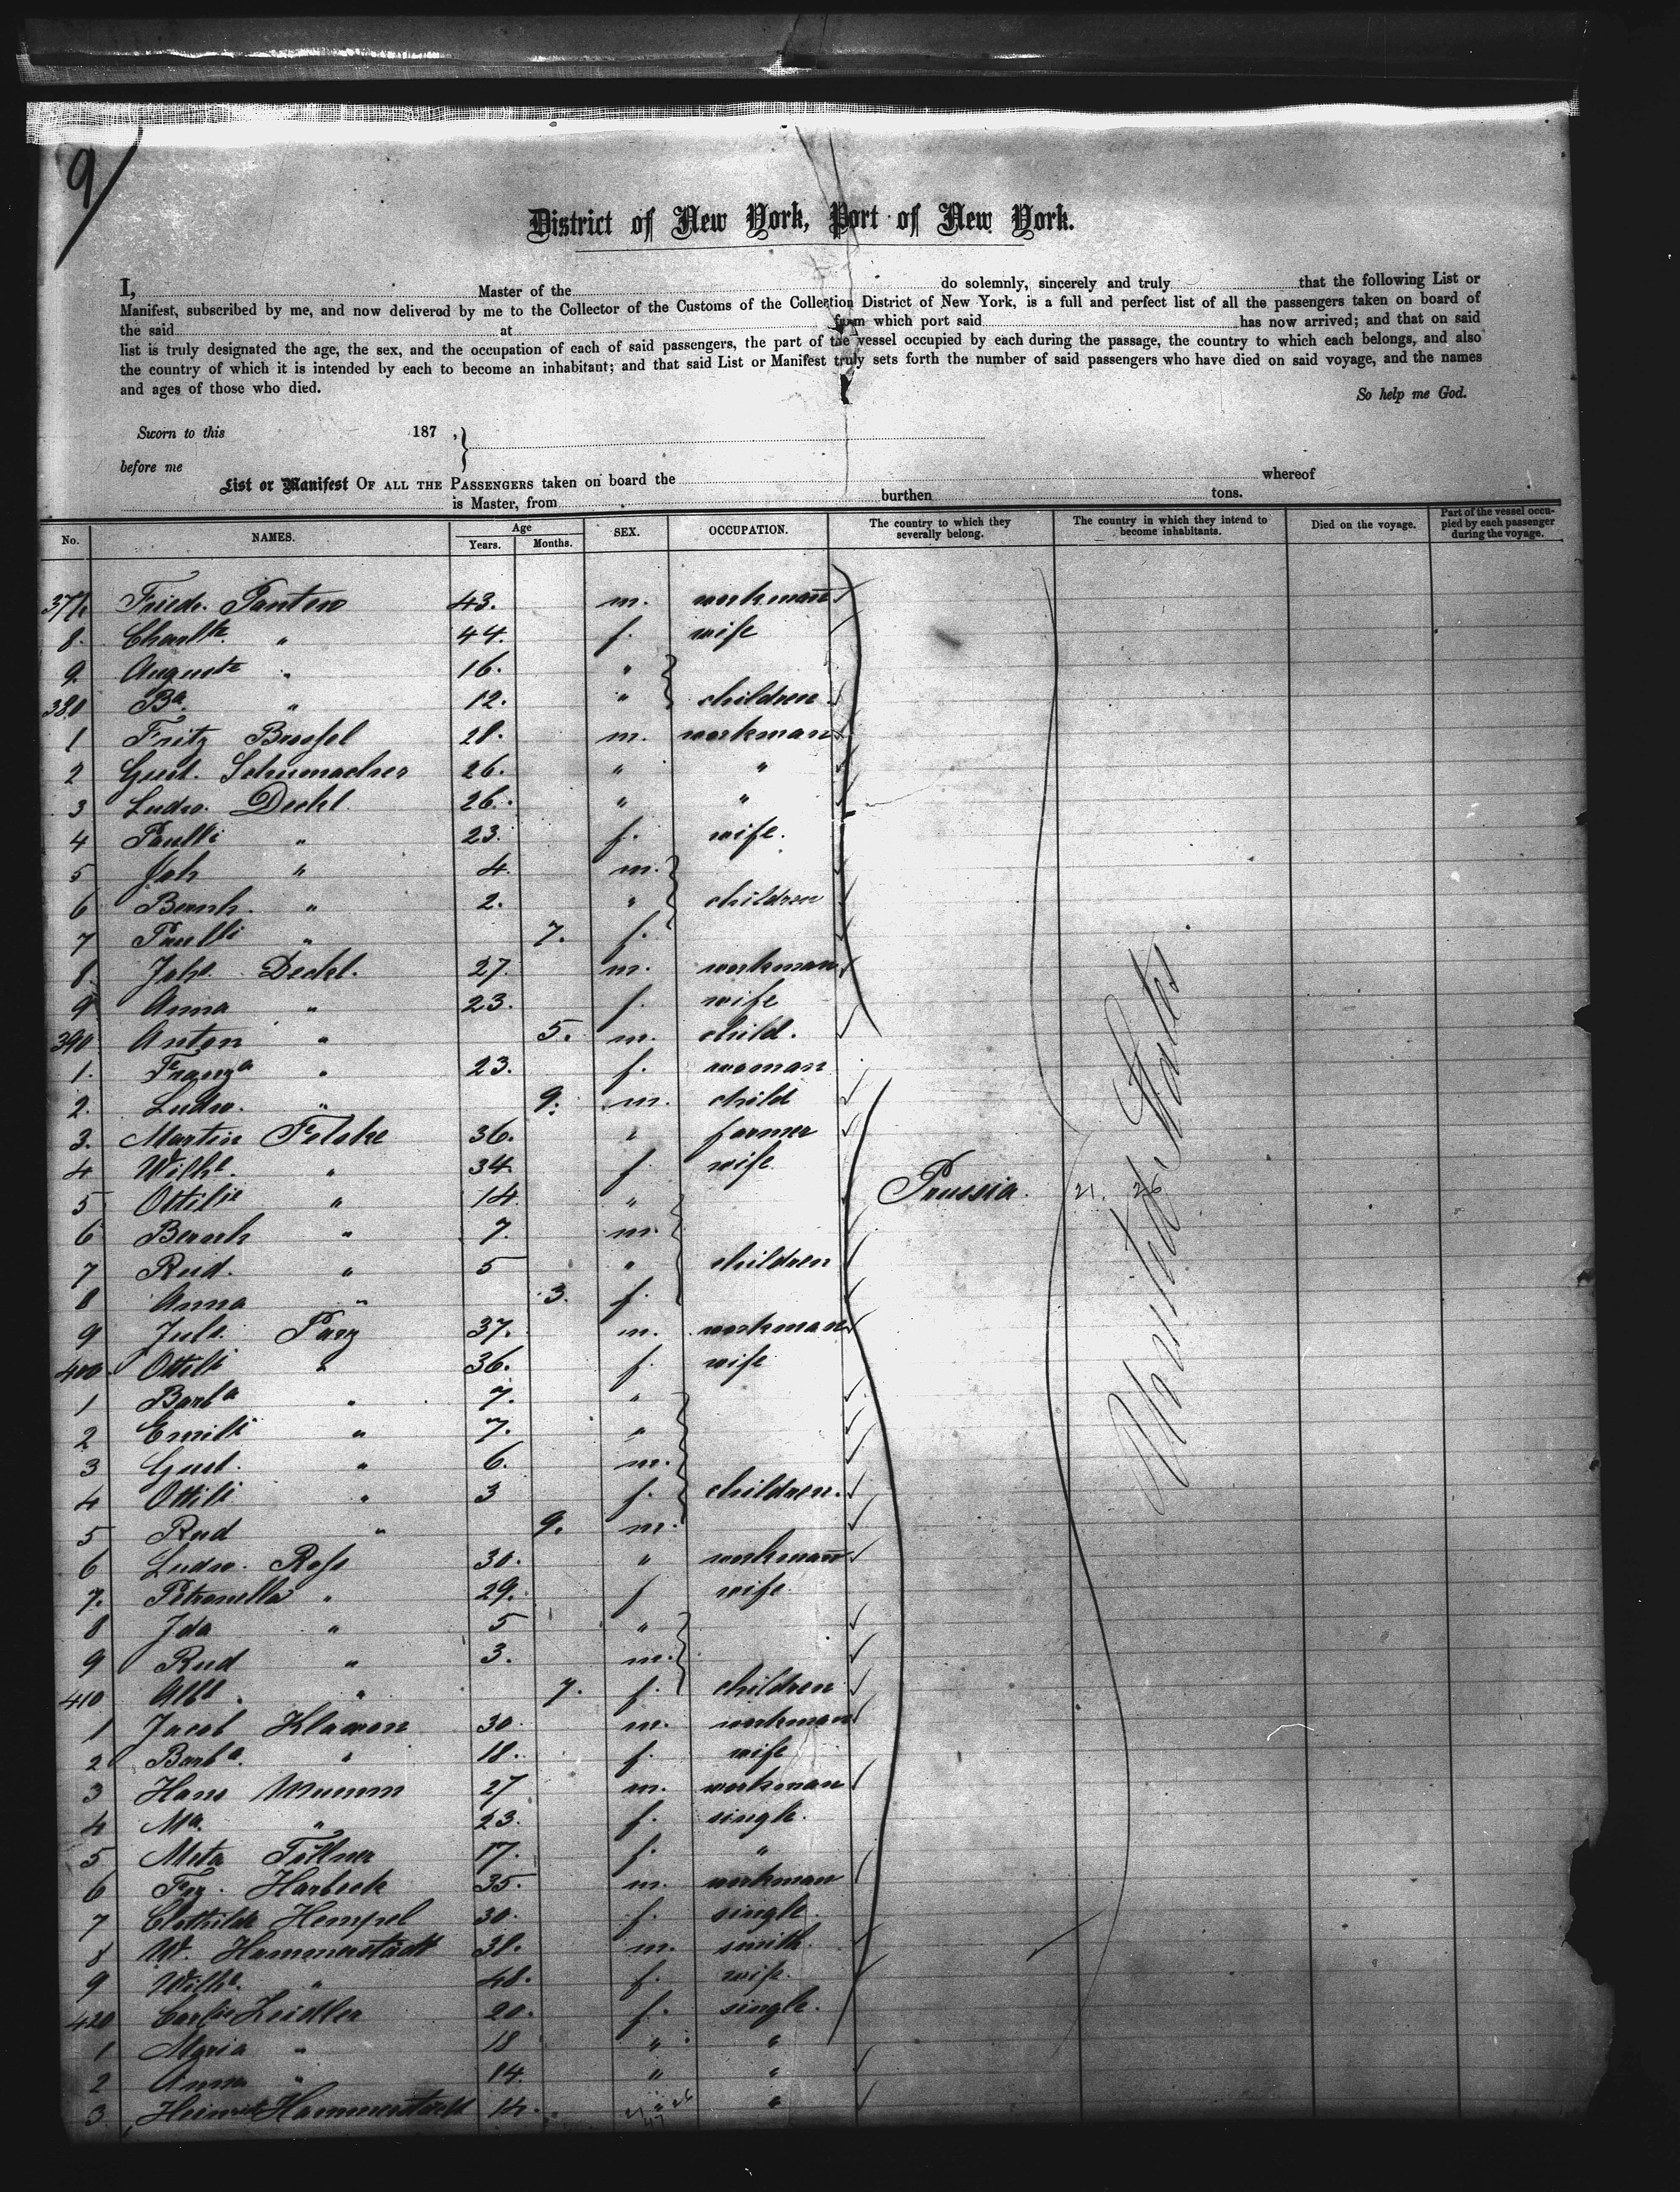 9/
District of New York, Port of New York.
I, Master of the do solemnly, sincerely and truly that the following List or
Manifest, subscribed by me, and now delivered by me to the Collector of the Customs of the Collection District of New York, is a full and perfect list of all the passengers taken on board of
the said at from which port said has now arrived; and that on said
list is truly designated the age, the sex, and the occupation of each of said passengers, the part of the vessel occupied by each during the passage, the country to which each belongs, and also
the country of which it is intended by each to become an inhabitant; and that said List or Manifest truly sets forth the number of said passengers who have died on said voyage, and the names
and ages of those who died.
So help me God.
Sworn to this 187 ,
before me
List or Manifest OF ALL THE PASSENGERS taken on board the whereof
is Master, from burthen tons.
No. NAMES. Age Years. Months. SEX. OCCUPATION. The country to which they severally belong. The country in which they intend to become inhabitants. Died on the voyage. Part of the vessel occupied by each passenger during the voyage.
377 Friedr. Panten 43. m. workman
8. Charltte. " 44. f. wife
9. Auguste " 16. "
380 Ba. " 12. " children
1 Fritz 28. m. workman
2 Gust. Schumacher 26. " "
3 Ludw. Deckl 26. " "
4 Paulli " 23. f. wife.
5 Joh " 4. m.
6 Bernh. " 2. " children
7 Paulli " 7. f.
8. Johs. Deckl. 27. m. workman
9 Anna " 23. f. wife
390 Anton " 5. m. child.
1. Franza " 23. f. woman
2. Ludw. " 9. m. child
3. Martin Felske 36. " farmer
4 Wilhe. " 34. f. wife
5 Ottilie " 14. " Prussia. 21. 26 United States
6 Bernh " 7. m.
7 Rud. " 5 " children
8 Anna " 3. f.
9 Juls. Parz 37. m. workman
400 Ottili " 36. f. wife
1 Barba " 7. "
2 Emili " 7. "
3 Gust. " 6. m.
4 Ottili " 3 f. children.
5 Rud " 9. m.
6 Ludw. Ross 30. " workman
7. Petronella " 29. f wife.
8 Ida " 5 "
9 Rud " 3. m.
410 " 7. f. children
1 Jacob Klawon 30. m. workman
2 Barba. " 18. f. wife
3 Hans Mumm 27 m. workman
4 Ma. " 23. f. single.
5 Meta Töllner 17. f. "
6 Frz. Harbeck 35. m. workman
7 Clothilde Hempel 30. f. single.
8 W. Hammerstädt 38. m. smith.
9 Wilhe. " 48. f. wife.
420 Zeidler 20. f. single.
1 Maria " 18 " "
2 Anna " 14. " "
3 Heinrich Hammerstädt 14. " "